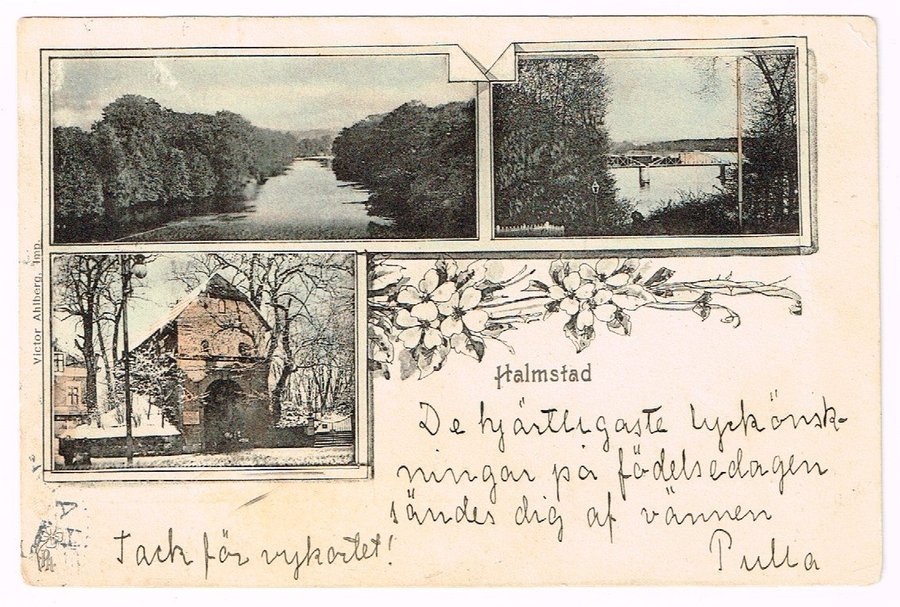 Victor Ahlberg, Imp.
Halmstad
De hjärtligaste lyckönsk-
ningar på födelsedagen
sändes dig af vännen
Pulla
Tack för vykortet!